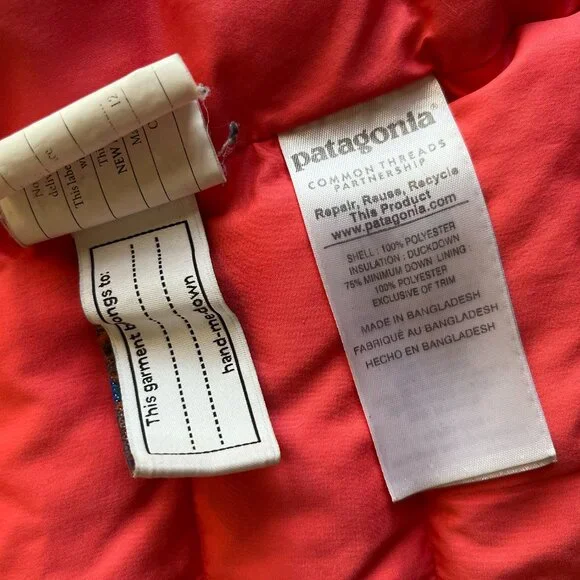 patagonia®
COMMON THREADS
PARTNERSHIP
Repair, Reuse, Recycle
This Product
www.patagonia.com
SHELL : 100% POLYESTER
INSULATION : DUCKDOWN
75% MINIMUM DOWN LINING
100% POLYESTER
EXCLUSIVE OF TRIM
MADE IN BANGLADESH
FABRIQUÉ AU BANGLADESH
HECHO EN BANGLADESH
This garment to:
hand-me-down
12
NEW
This labe
No